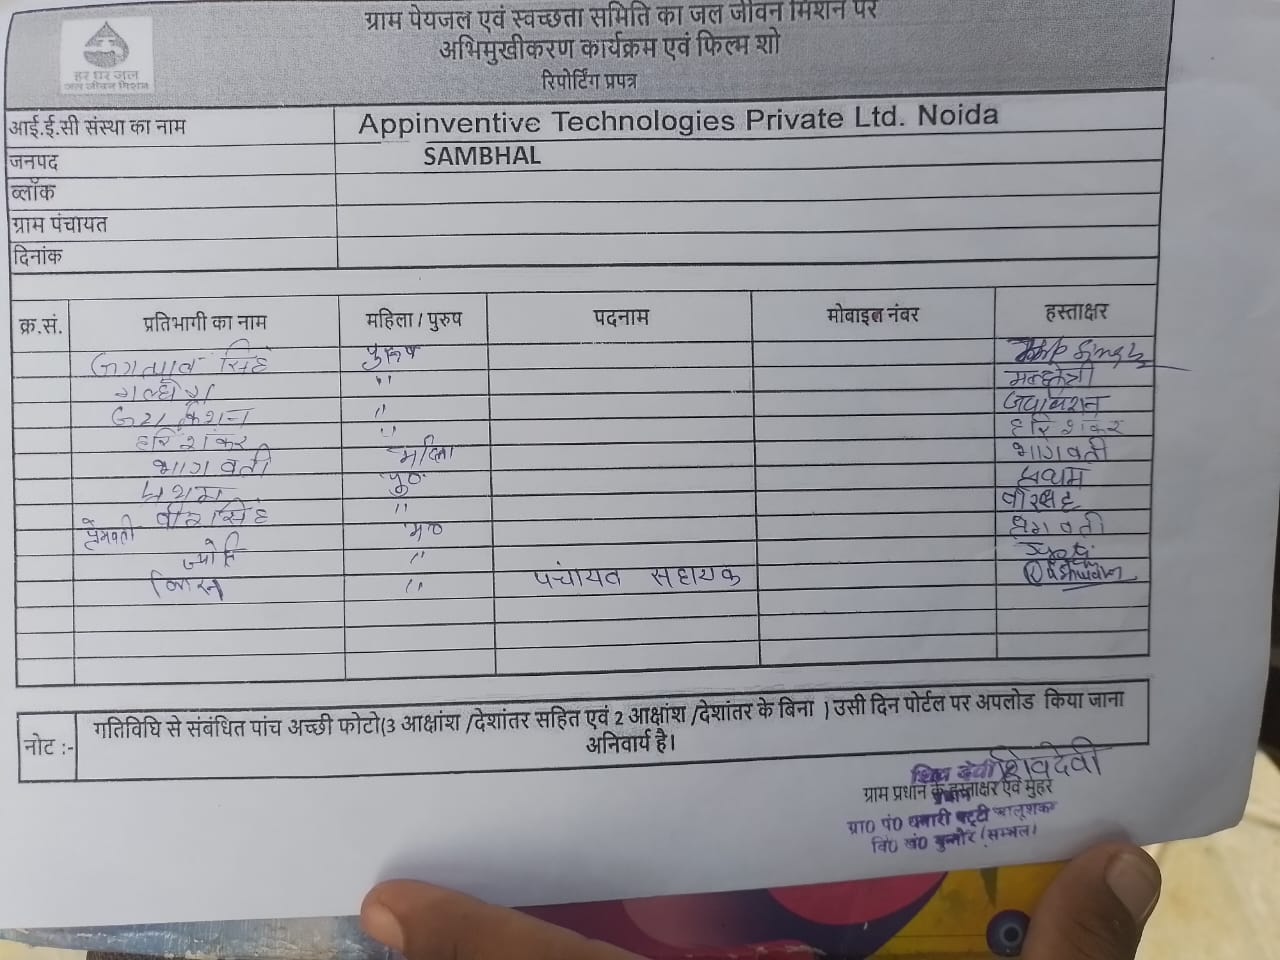 ग्राम पेयजल एवं स्वच्छता समिति का जल जीवन मिशन पर
अभिमुखीकरण कार्यक्रम एवं फिल्म शो
रिपोर्टिंग प्रपत्र
हर घर जल
जल जीवन मिशन
आई.ई.सी संस्था का नाम Appinventive Technologies Private Ltd. Noida
जनपद SAMBHAL
ब्लॉक
ग्राम पंचायत
दिनांक
क्र.सं. प्रतिभागी का नाम महिला / पुरुष पदनाम मोबाइल नंबर हस्ताक्षर
सिंह पुरुष Singh
"
"
हरि शंकर " हरि शंकर
भागवती महिला भागवती
पु०
वीर सिंह "
प्रेमवती म०
ज्योति " Jyoti
" पंचायत सहायक
नोट :- गतिविधि से संबंधित पांच अच्छी फोटो(3 आक्षांश /देशांतर सहित एवं 2 आक्षांश /देशांतर के बिना ) उसी दिन पोर्टल पर अपलोड किया जाना
अनिवार्य है।
शिव देवी शिवदेवी
ग्राम प्रधान के हस्ताक्षर एवं मुहर
ग्रा0 पं0 पट्टी
वि0 खं0 (सम्भल)